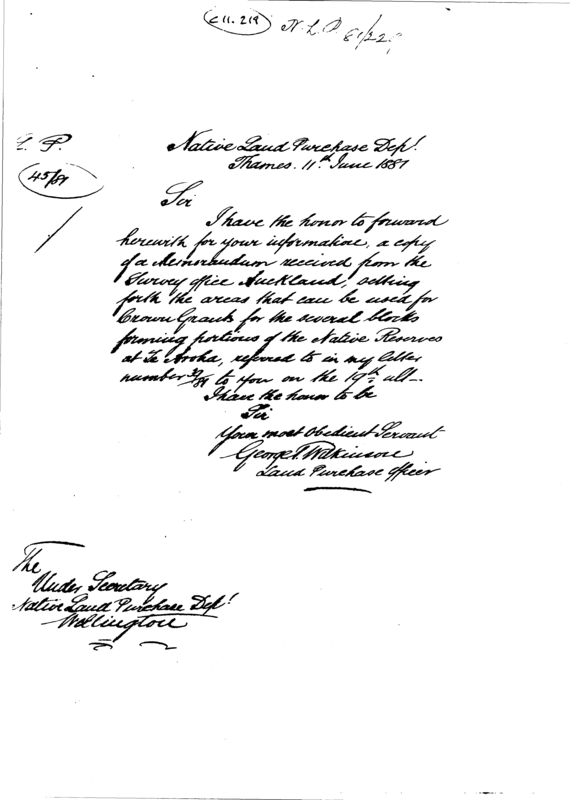 E 11. 219
N. L. P. 81/22
L. P.
45/81
Native Land Purchase Dept.
Thames. 11th June 1881
Sir
I have the honor to forward
herewith for your information, a copy
of a Memorandum received from the
Survey office Auckland, setting
forth the areas that can be used for
Crown Grants for the several blocks
forming portions of the Native Reserves
at Te Aroha, referred to in my letter
number /81 to you on the 19th ult—
I have the honor to be
Sir
Your most Obedient Servant
George T. Wilkinson
Land Purchase Officer
The
Under Secretary
Native Land Purchase Dept.
Wellington